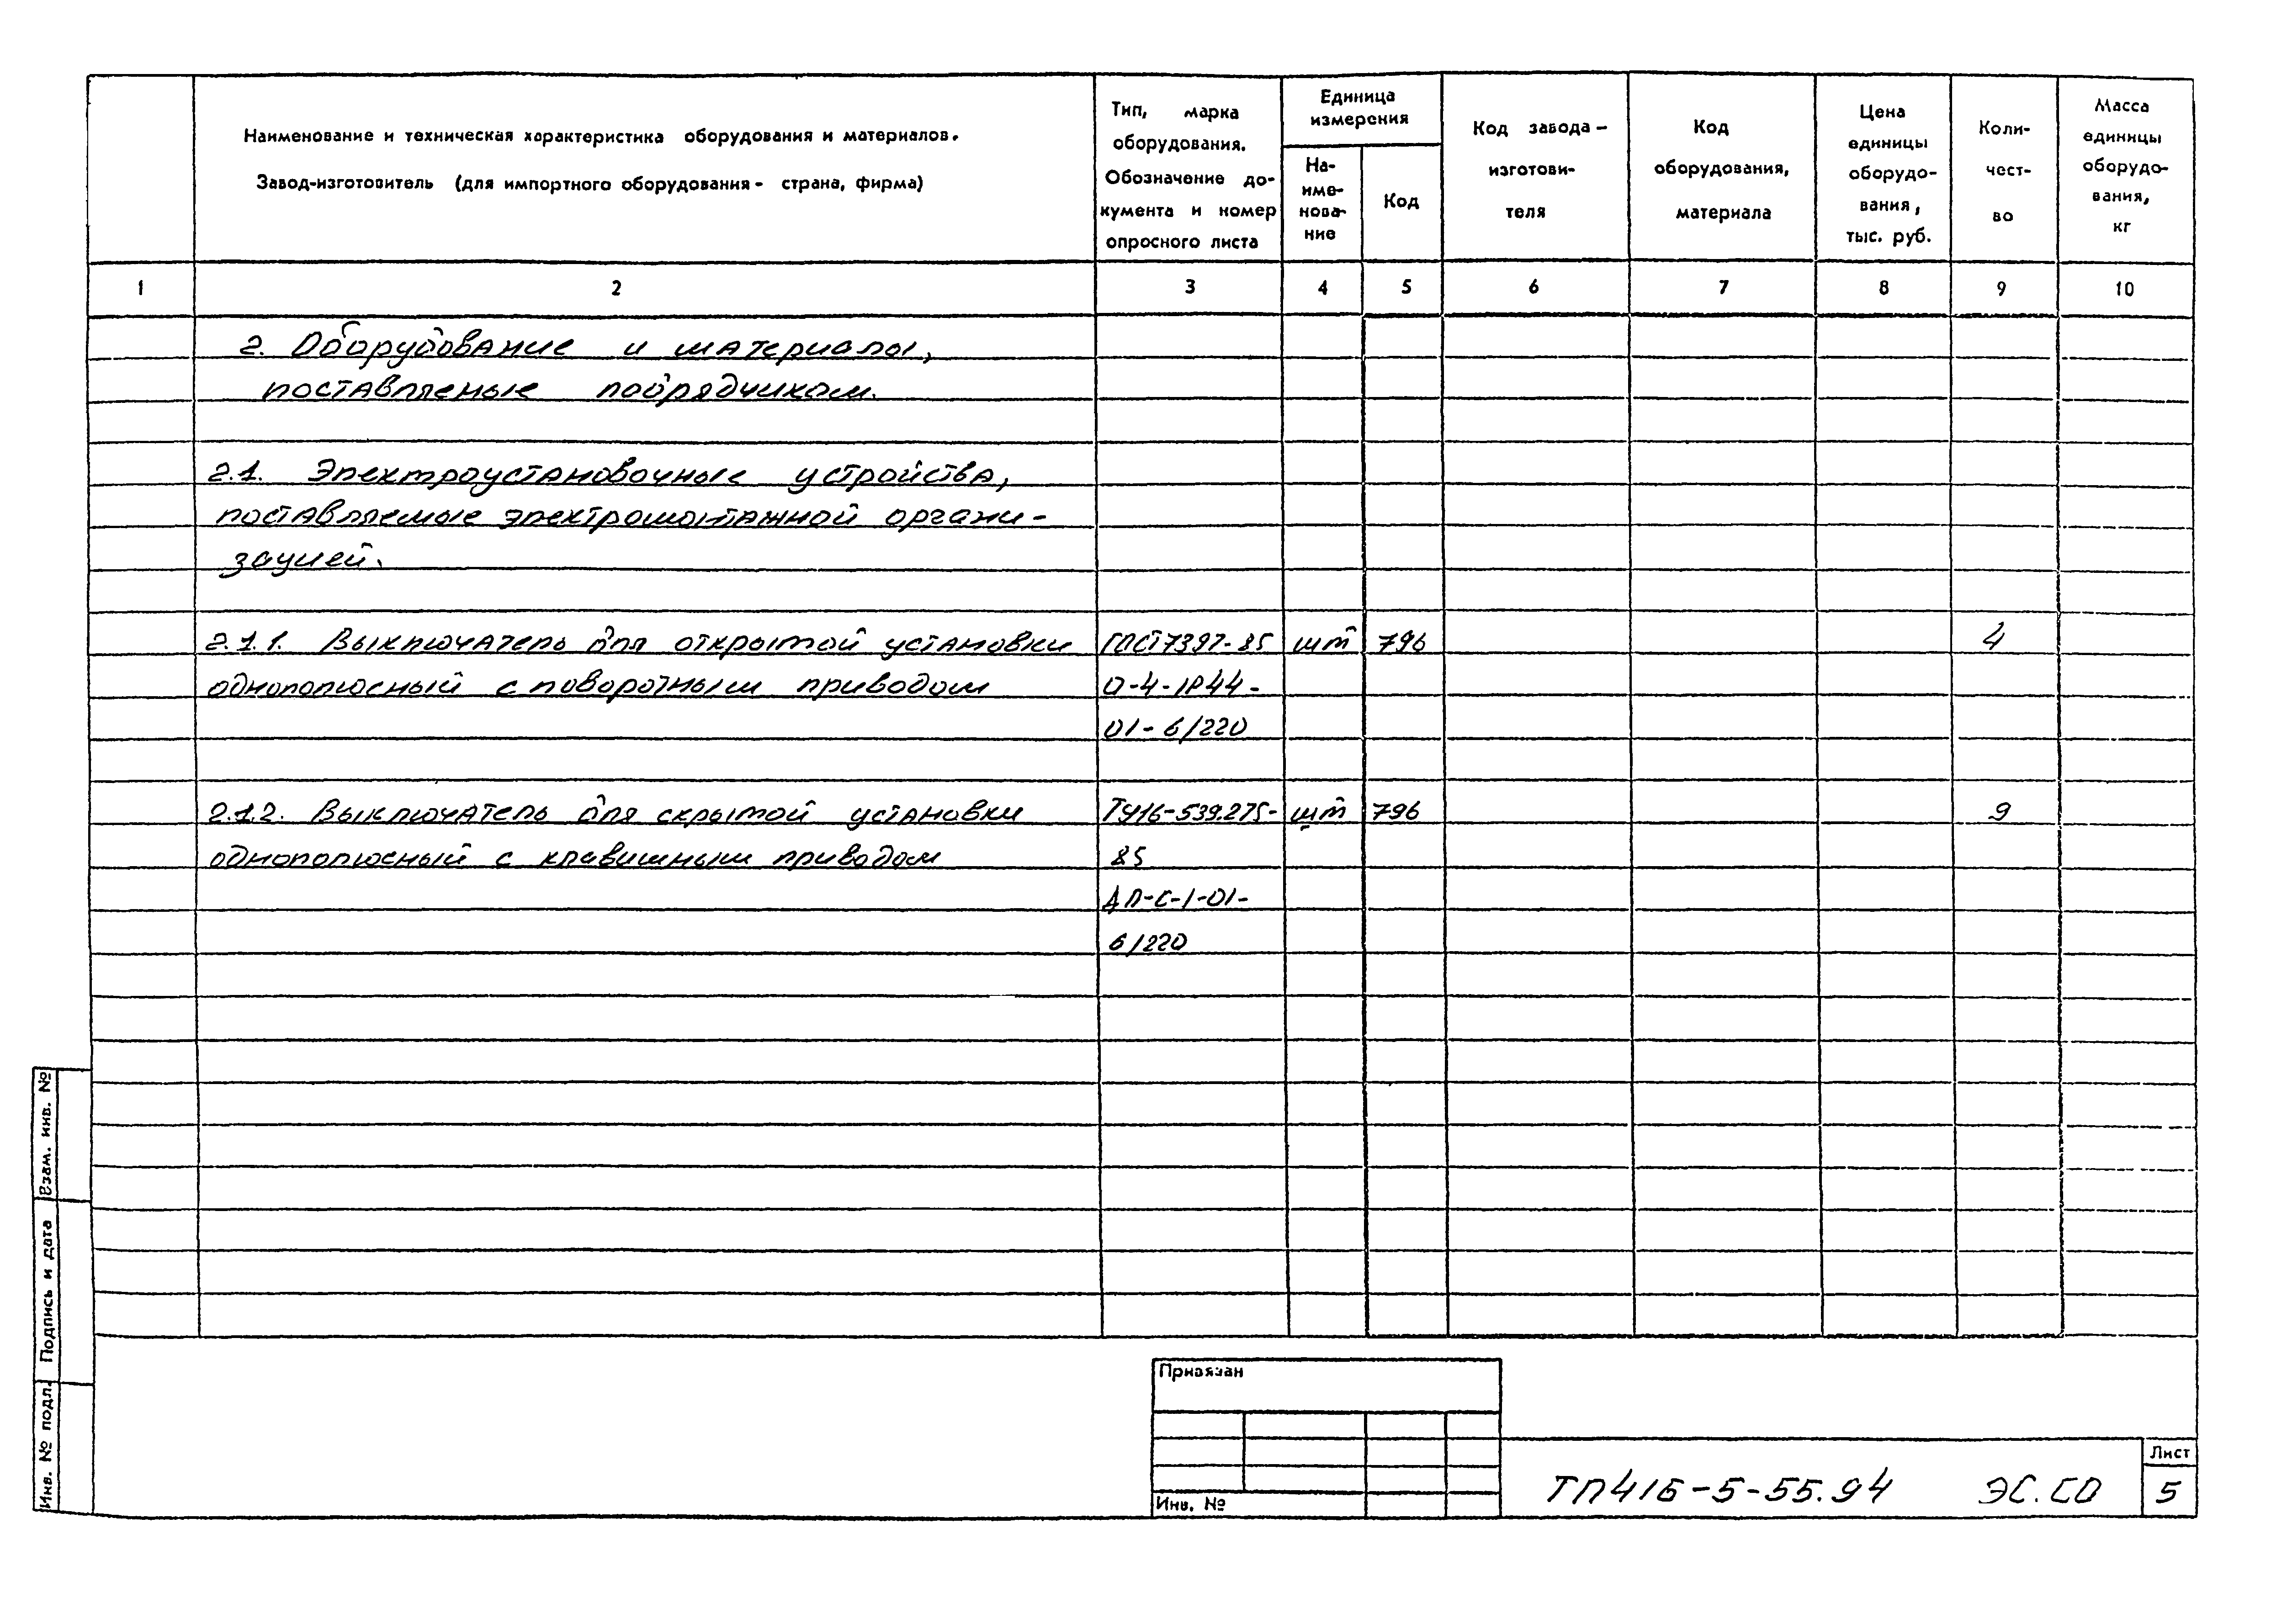 Наименование и техническая характеристика оборудования и материалов.
Завод-изготовитель (для импортного оборудования- страна, фирма)
Тип, марка
оборудования.
Обозначение до-
кумента и номер
опросного листа
Единица
измерения
На-
име-
нова-
ние
Код
Код завода-
изготови-
теля
Код
оборудования,
материала
Цена
единицы
оборудо-
вания,
тыс. руб.
Коли-
чест-
во
Масса
единицы
оборудо-
вания,
кг
1 2 3 4 5 6 7 8 9 10
2. Оборудование и материалы,
поставляемые подрядчиком.
2.1. Электроустановочные устройства,
поставляемые электромонтажной органи-
зацией.
2.1.1. Выключатель для открытой установки ГОСТ7397-85 шт 796 4
однополюсный с поворотным приводом О-4-IP44-
01-6/220
2.1.2. Выключатель для скрытой установки ТУ16-539.275- шт 796 9
однополюсный с клавишным приводом 85
АП-С-1-01-
6/220
Взам. инв. №
Подпись и дата
Инв. № подл.
Привязан
Инв. №
ТП416-5-55.94 ЭС.СО
Лист
5